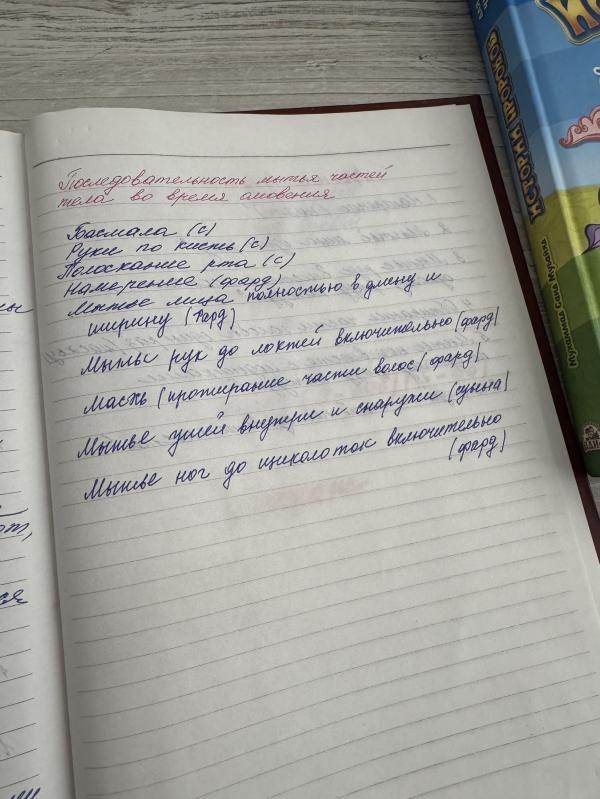 Последовательность мытья частей
тела во время омовения
Басмала (с)
Руки по кисть (с)
Полоскание рта (с)
Намерение (фард)
Мытье лица полностью в длину и
ширину (фард)
Мытье рук до локтей включительно (фард)
Масхь (протирание части волос (фард)
Мытье ушей внутри и снаружи (сунна)
Мытье ног до щиколоток включительно
(фард)
ИСТОРИИ ПРОРОКОВ
Муслимка Саид Мупайна